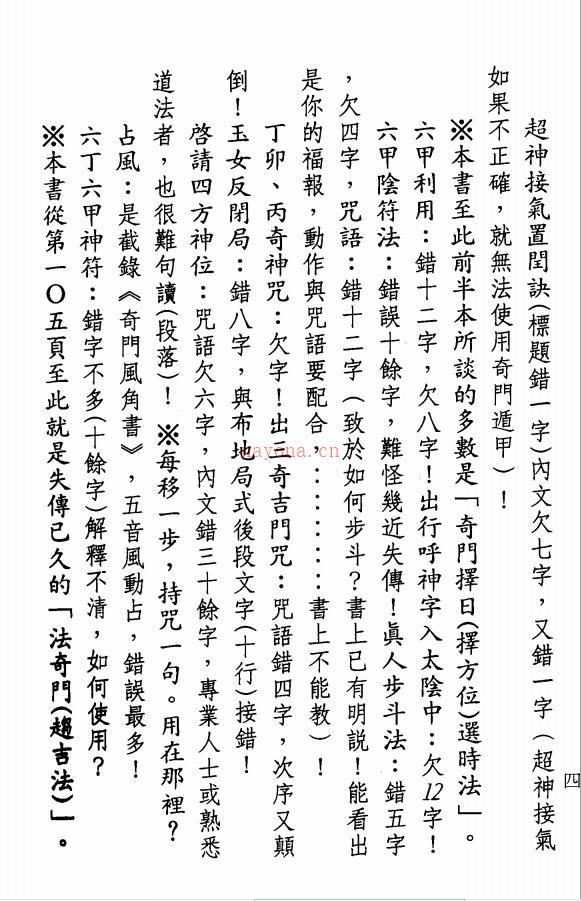 超神接氣置閏訣(標題錯一字)內文欠七字，又錯一字（超神接氣
如果不正確，就無法使用奇門遁甲）！
※本書至此前半本所談的多數是「奇門擇日(擇方位)選時法」。
六甲利用：錯十二字，欠八字！出行呼神字入太陰中：欠12字！
六甲陰符法：錯誤十餘字，難怪幾近失傳！眞人步斗法：錯五字
，欠四字，咒語：錯十二字（致於如何步斗？書上已有明說！能看出
是你的福報，動作與咒語要配合，：：：：：：書上不能教）！
丁卯、丙奇神咒：欠字！出三奇吉門咒：咒語錯四字，次序又顛
倒！玉女反閉局：錯八字，與布地局式後段文字(十行)接錯！
啓請四方神位：咒語欠六字，內文錯三十餘字，專業人士或熟悉
道法者，也很難句讀(段落)！※每移一步，持咒一句。用在那裡？
占風：是截錄《奇門風角書》，五音風動占，錯誤最多！
六丁六甲神符：錯字不多(十餘字)解釋不清，如何使用？
※本書從第一〇五頁至此就是失傳已久的「法奇門(趨吉法)」。
四
nayona.cn